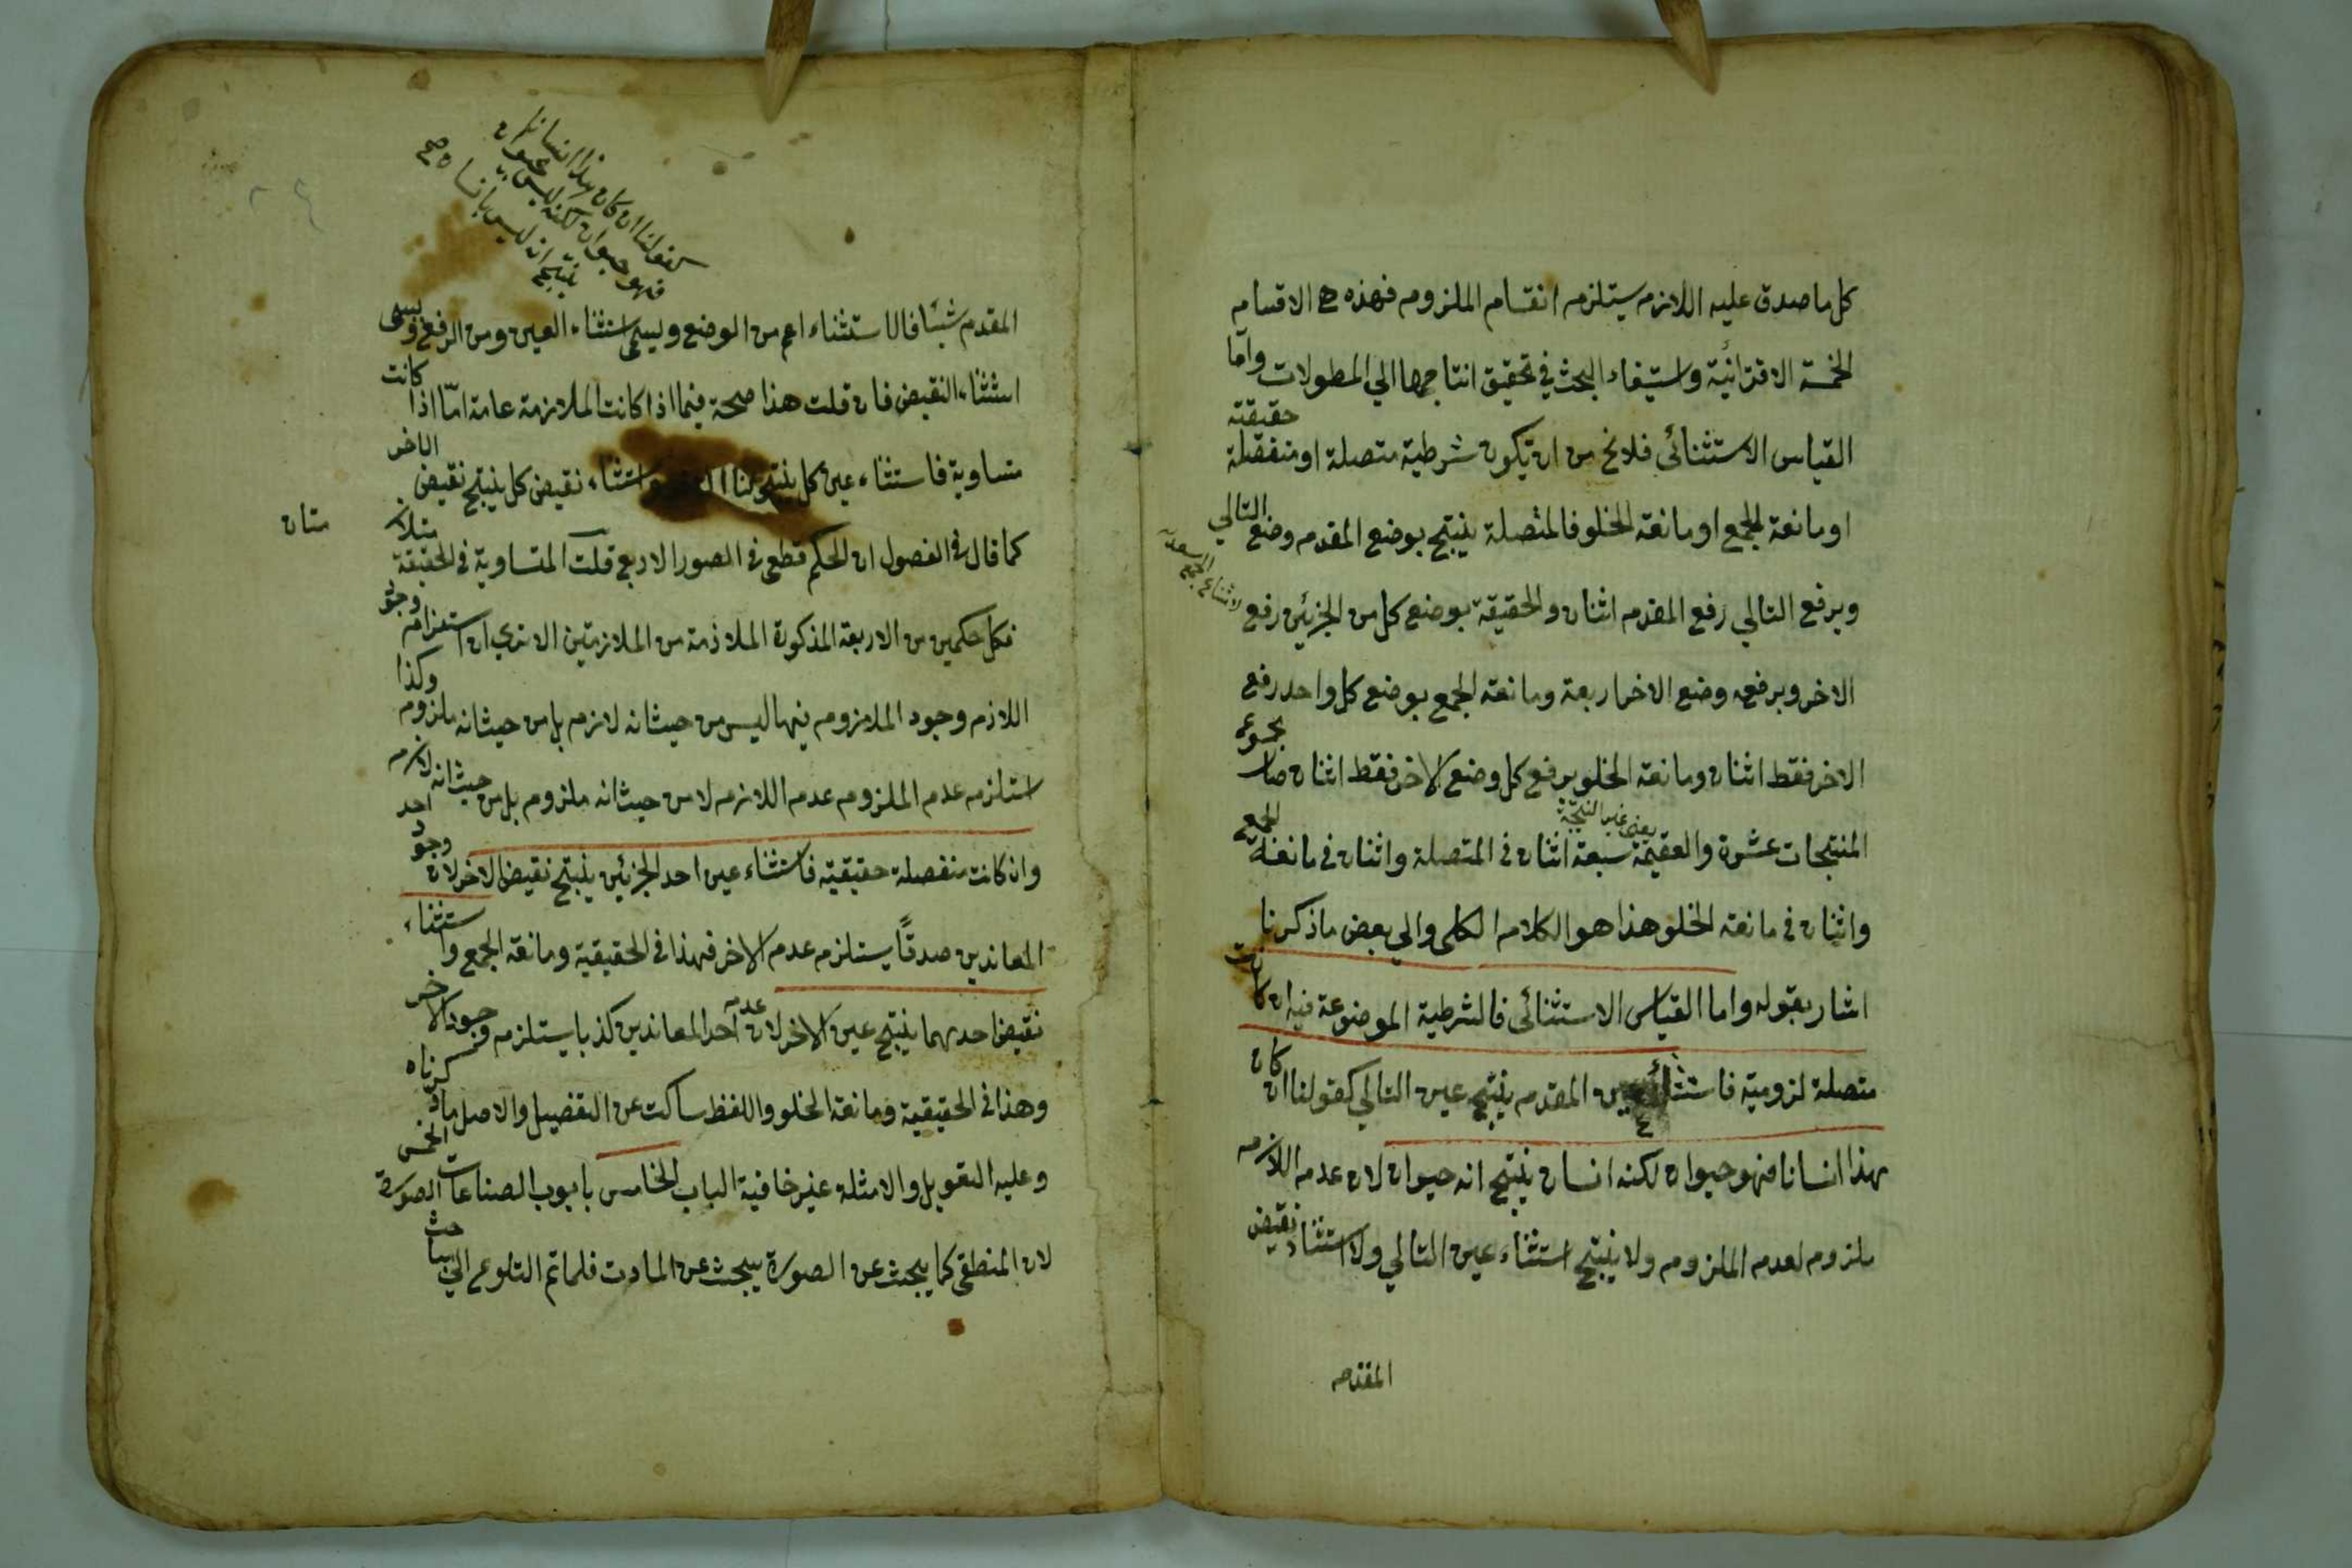 كل ما صدق عليه اللازم يستلزم انقسام الملزوم فهذه هي الاقسام
الخمسة الاقترانية واستيفاء البحث في تحقيق انتاجها الي المطولات واما
القياس الاستثنائي فلا يخ من ان يكون شرطية متصلة او منفصلة حقيقته
او مانعة الجمع او مانعة الخلو فالمتصلة ينتج بوضع المقدم وضع التالي
وبرفع التالي رفع المقدم اثنان والحقيقة بوضع كل من الجزئين رفع
الاخر وبرفعه وضع الاخر اربعة ومانعة الجمع بوضع كل واحد رفع
الاخر فقط اثنان ومانعة الخلو برفع كل وضع الاخر فقط اثنان صار مجموع
يعني غير النتيجة
المنتجات عشرة والعقيمة سبعة اثنان في المتصلة واثنان في مانعة الجمع
واثنان في مانعة الخلو هذا هو الكلام الكلي والي بعض ما ذكرنا
اشار بقوله واما القياس الاستثنائي فالشرطية الموضوعة فيه ان كانت
متصلة لزومية فاستثناء عين المقدم ينتج عين التالي كقولنا ان كان
هذا انسانا فهو حيوان لكنه انسان ينتج انه حيوان لان عدم اللازم
ملزوم لعدم الملزوم ولا ينتج استثناء عين التالي ولا استثناء نقيض
المقدم
كقولنا ان كان هذا انسانا
فهو حيوان لكنه ليس بحيوان
ينتج انه ليس بانسان صح
المقدم شيئا فالاستثناء اعم من الوضع ويسمى استثناء العين ومن الرفع ويسمى
استثناء النقيض فان قلت هذا صحة فيما اذا كانت الملازمة عامة اما اذا كانت
متساوية فاستثناء عين كل ينتج واستثناء نقيض كل ينتج نقيض الاخر
كما قال في الفصول ان الحكم قطع في الصور الاربع قلت المتساوية في الحقيقة متلازمتان
فكل حكمين من الاربعة المذكورة الملازمة من الملازمتين الا تري ان استلزام وجود
اللازم وجود الملزوم فيها ليس من حيث انه لازم بل من حيث انه ملزوم وكذا
استلزم عدم الملزوم عدم اللازم لا من حيث انه ملزوم بل من حيث انه لازم
وان كانت منفصلة حقيقية فاستثناء عين احد الجزئين ينتج نقيض الاخر لان وجود احد
المعاندين صدقا يستلزم عدم الاخر فهذا في الحقيقية ومانعة الجمع واستثناء
نقيض احدهما ينتج عين الاخر لان عدم احد المعاندين كذبا يستلزم وجود الاخر
وهذا في الحقيقية ومانعة الخلو واللفظ ساكت عن التفصيل والاصل ما ذكرناه
وعليه التعويل والامثلة غير خافية الباب الخامس بابواب الصناعات الخمس الصورة
لان المنطقي كما يبحث عن الصورة يبحث عن المادت فلما تم التلوع الي مباحث